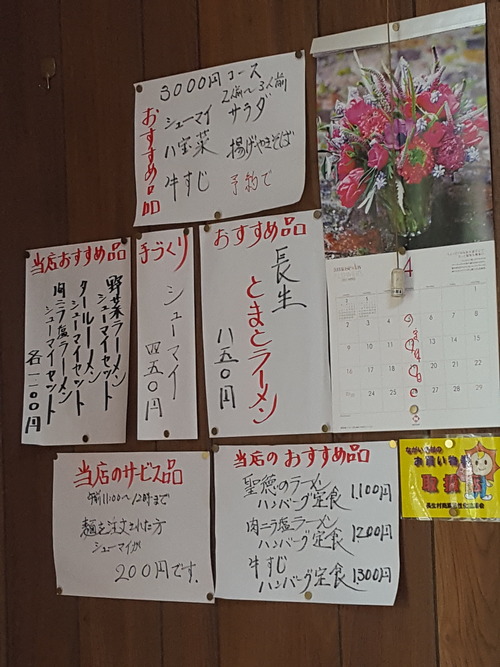 3000円コース
2人前〜3人前
おすすめ品
シューマイ サラダ
八宝菜 揚げやきそば
牛すじ 予約で
当店おすすめ品
野菜ラーメン
シューマイセット
タールーメン
シューマイセット
肉ニラ塩ラーメン
シューマイセット
各一一00円
手づくり
シューマイ
四五0円
おすすめ品
長生
とまとラーメン
八五0円
4
当店のサービス品
午前11:00〜12時まで
麺を注文された方
シューマイが
200円です.
当店のおすすめ品
聖徳のラーメン
ハンバーグ定食 1,100円
肉ニラ塩ラーメン
ハンバーグ定食 1200円
牛すじ
ハンバーグ定食 1300円
お買い物
取扱